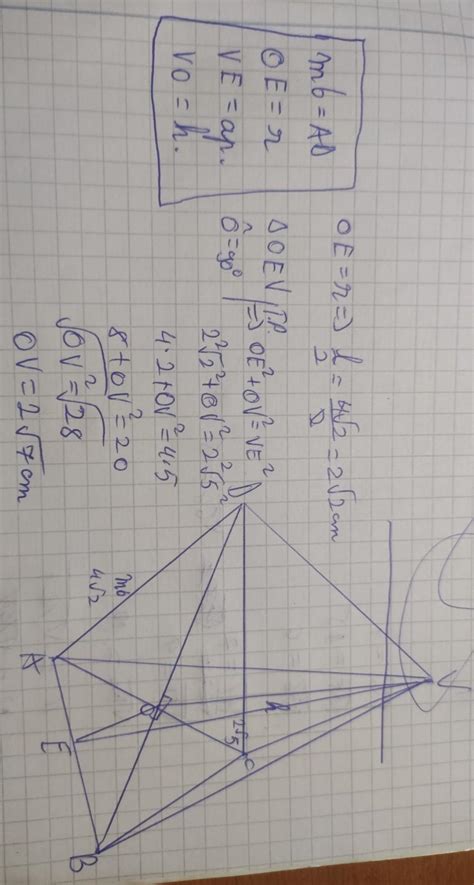 mb = AB
OE = r
VE = ap.
VO = h.
OE = r => l/2 = 4√2/2 = 2√2 cm
Δ OEV
Ô = 90° | T.P. => OE² + OV² = VE²
2²√2² + OV² = 2²√5²
4·2 + OV² = 4·5
8 + OV² = 20
√OV² = √28
OV = 2√7 cm
D
h
2√5
C
O
mb
4√2
A
E
B